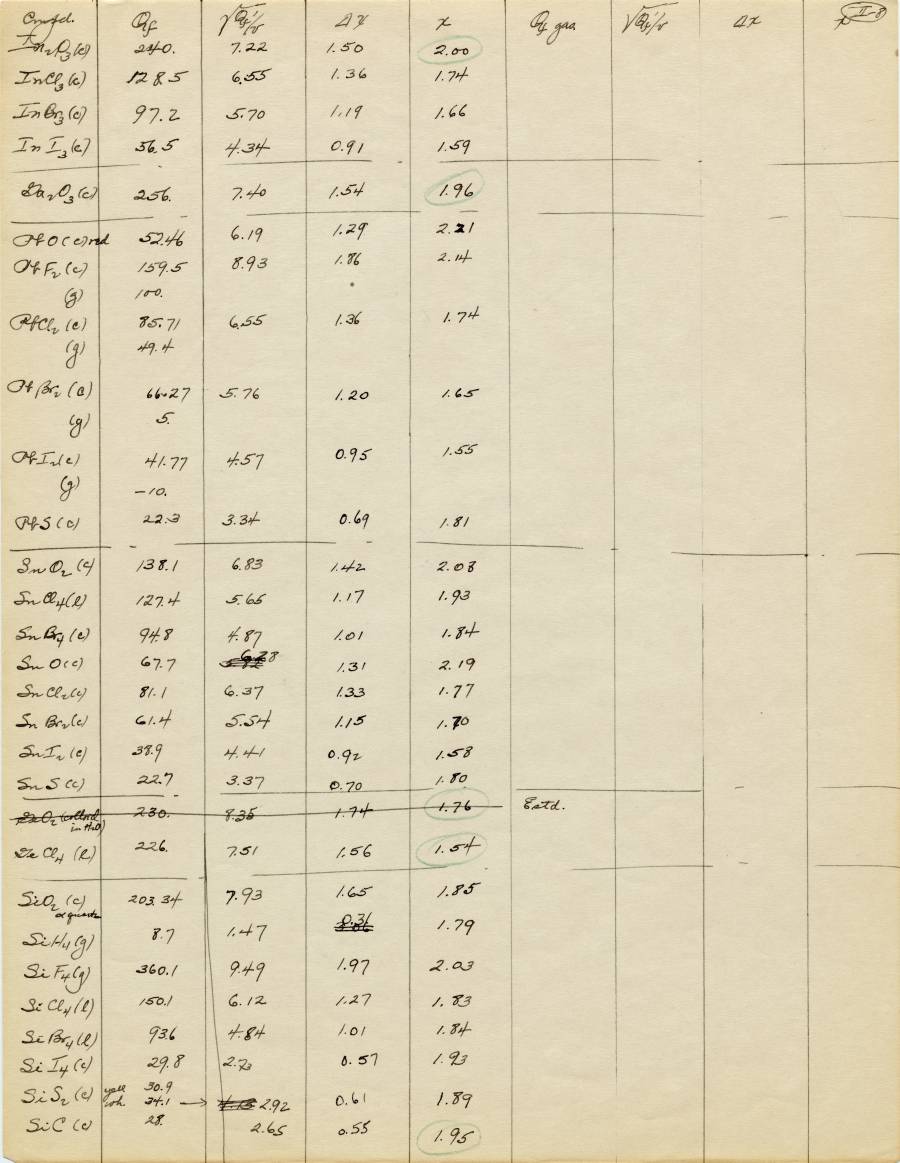 Cmpd. Qf √Qf/v Δx x Qf gas √Qf/v Δx x II-8
In2O3(c) 240. 7.22 1.50 2.00
InCl3(c) 128.5 6.55 1.36 1.74
InBr3(c) 97.2 5.70 1.19 1.66
InI3(c) 56.5 4.34 0.91 1.59
Ga2O3(c) 256. 7.40 1.54 1.96
PbO(c) red 52.46 6.19 1.29 2.21
PbF2(c) 159.5 8.93 1.86 2.14
(g) 100.
PbCl2(c) 85.71 6.55 1.36 1.74
(g) 49.4
PbBr2(c) 66.27 5.76 1.20 1.65
(g) 5.
PbI2(c) 41.77 4.57 0.95 1.55
(g) -10.
PbS(c) 22.3 3.34 0.69 1.81
SnO2(c) 138.1 6.83 1.42 2.08
SnCl4(l) 127.4 5.65 1.17 1.93
SnBr4(c) 94.8 4.87 1.01 1.84
SnO(c) 67.7 6.28 1.31 2.19
SnCl2(c) 81.1 6.37 1.33 1.77
SnBr2(c) 61.4 5.54 1.15 1.70
SnI2(c) 38.9 4.41 0.92 1.58
SnS(c) 22.7 3.37 0.70 1.80
GeO2 (colloid 230. 8.35 1.74 1.76 Estd.
in H2O)
GeCl4(l) 226. 7.51 1.56 1.54
SiO2(c) 203.34 7.93 1.65 1.85
α quartz
SiH4(g) 8.7 1.47 0.31 1.79
SiF4(g) 360.1 9.49 1.97 2.03
SiCl4(l) 150.1 6.12 1.27 1.83
SiBr4(l) 93.6 4.84 1.01 1.84
SiI4(c) 29.8 2.73 0.57 1.93
SiS2(c) yell 30.9
wh. 34.1 → 2.92 0.61 1.89
SiC(c) 28. 2.65 0.55 1.95